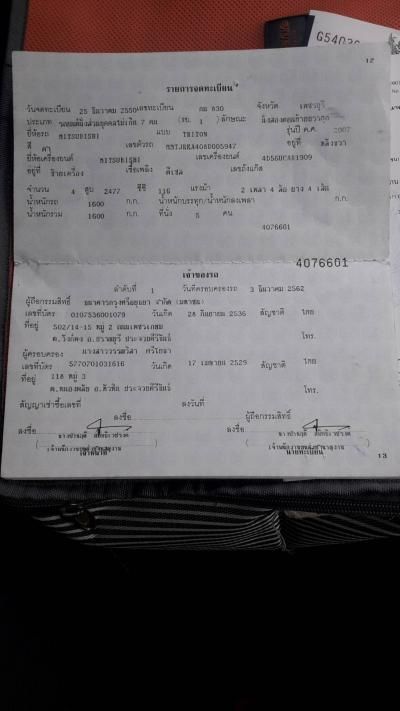 G5403
12
รายการจดทะเบียน
วันจดทะเบียน 25 ธันวาคม 2550 เลขทะเบียน กม 830 จังหวัด เพชรบุรี
ประเภท รถยนต์นั่งส่วนบุคคลไม่เกิน 7 คน (รย. 1 ) ลักษณะ
ยี่ห้อรถ MITSUBISHI แบบ TRITON รุ่นปี ค.ศ. 2007
สี ดำ เลขตัวรถ อยู่ที่
ยี่ห้อเครื่องยนต์ MITSUBISHI เลขเครื่องยนต์ 4D56UCAA1909
อยู่ที่ เชื้อเพลิง ดีเซล เลขถังแก๊ส
จำนวน 4 สูบ 2477 ซีซี 116 แรงม้า 2 เพลา 4 ล้อ ยาง 4 เส้น
น้ำหนักรถ 1600 ก.ก. น้ำหนักบรรทุก/น้ำหนักลงเพลา ก.ก.
น้ำหนักรวม 1600 ก.ก. ที่นั่ง 5 คน
4076601
4076601
เจ้าของรถ
ลำดับที่ 1 วันที่ครอบครองรถ 3 ธันวาคม 2562
ผู้ถือกรรมสิทธิ์ ธนาคารกรุงศรีอยุธยา จำกัด (มหาชน)
เลขที่บัตร 0107536001079 วันเกิด 28 กันยายน 2536 สัญชาติ ไทย
ที่อยู่ 502/14-15 หมู่ 2 ถนนเพชรเกษม
ต.วังก์พง อ.ปราณบุรี ประจวบคีรีขันธ์ โทร.
ผู้ครอบครอง นางสาววรรณวิสา
เลขที่บัตร 5770701031616 วันเกิด 17 เมษายน 2529 สัญชาติ ไทย
ที่อยู่ 118 หมู่ 3
ต.หนองพลับ อ.หัวหิน ประจวบคีรีขันธ์ โทร.
สัญญาเช่าซื้อเลขที่ ลงวันที่
ลงชื่อ ผู้ถือกรรมสิทธิ์
ลงชื่อ ลงชื่อ
นายทะเบียน
13